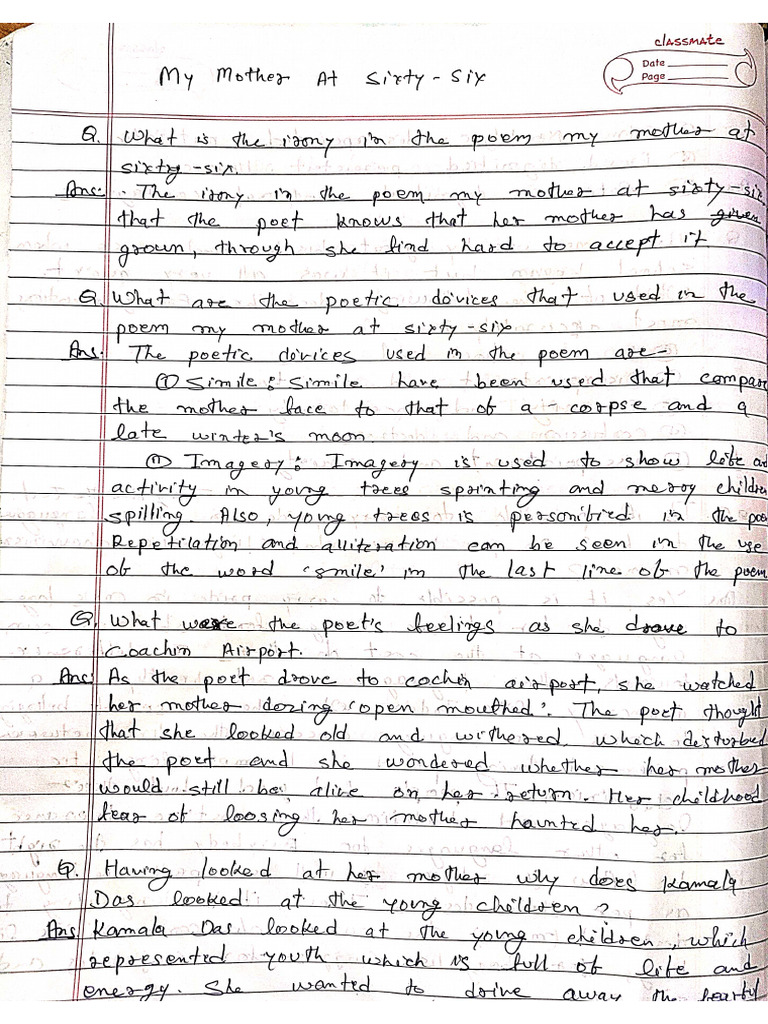 classmate
Date
Page
My Mother At Sixty-Six
Q. What is the irony in the poem my mother at
sixty-six.
Ans: The irony in the poem my mother at sixty-six
that the poet knows that her mother has given
grown, through she find hard to accept it
Q. What are the poetic divices that used in the
poem my mother at sixty-six
Ans: The poetic divices used in the poem are-
(i) Simile: Simile have been used that compare
the mother face to that of a corpse and a
late winter's moon
(ii) Imagery: Imagery is used to show life and
activity in young trees sprinting and merry children
spilling. Also, young trees is personified in the poem
Repetilation and alliteration can be seen in the use
of the word 'smile' in the last line of the poem
Q. What were the poet's feelings as she drove to
Coachin Airport.
Ans: As the poet drove to cochin airport, she watched
her mother dozing 'open mouthed'. The poet thought
that she looked old and withered, which disturbed
the poet and she wondered whether her mother
would still be alive on her return. Her childhood
fear of loosing her mother haunted her.
Q. Having looked at her mother why does Kamala
Das looked at the young children?
Ans Kamala Das looked at the young children, which
represented youth which is full of life and
energy. She wanted to drive away the